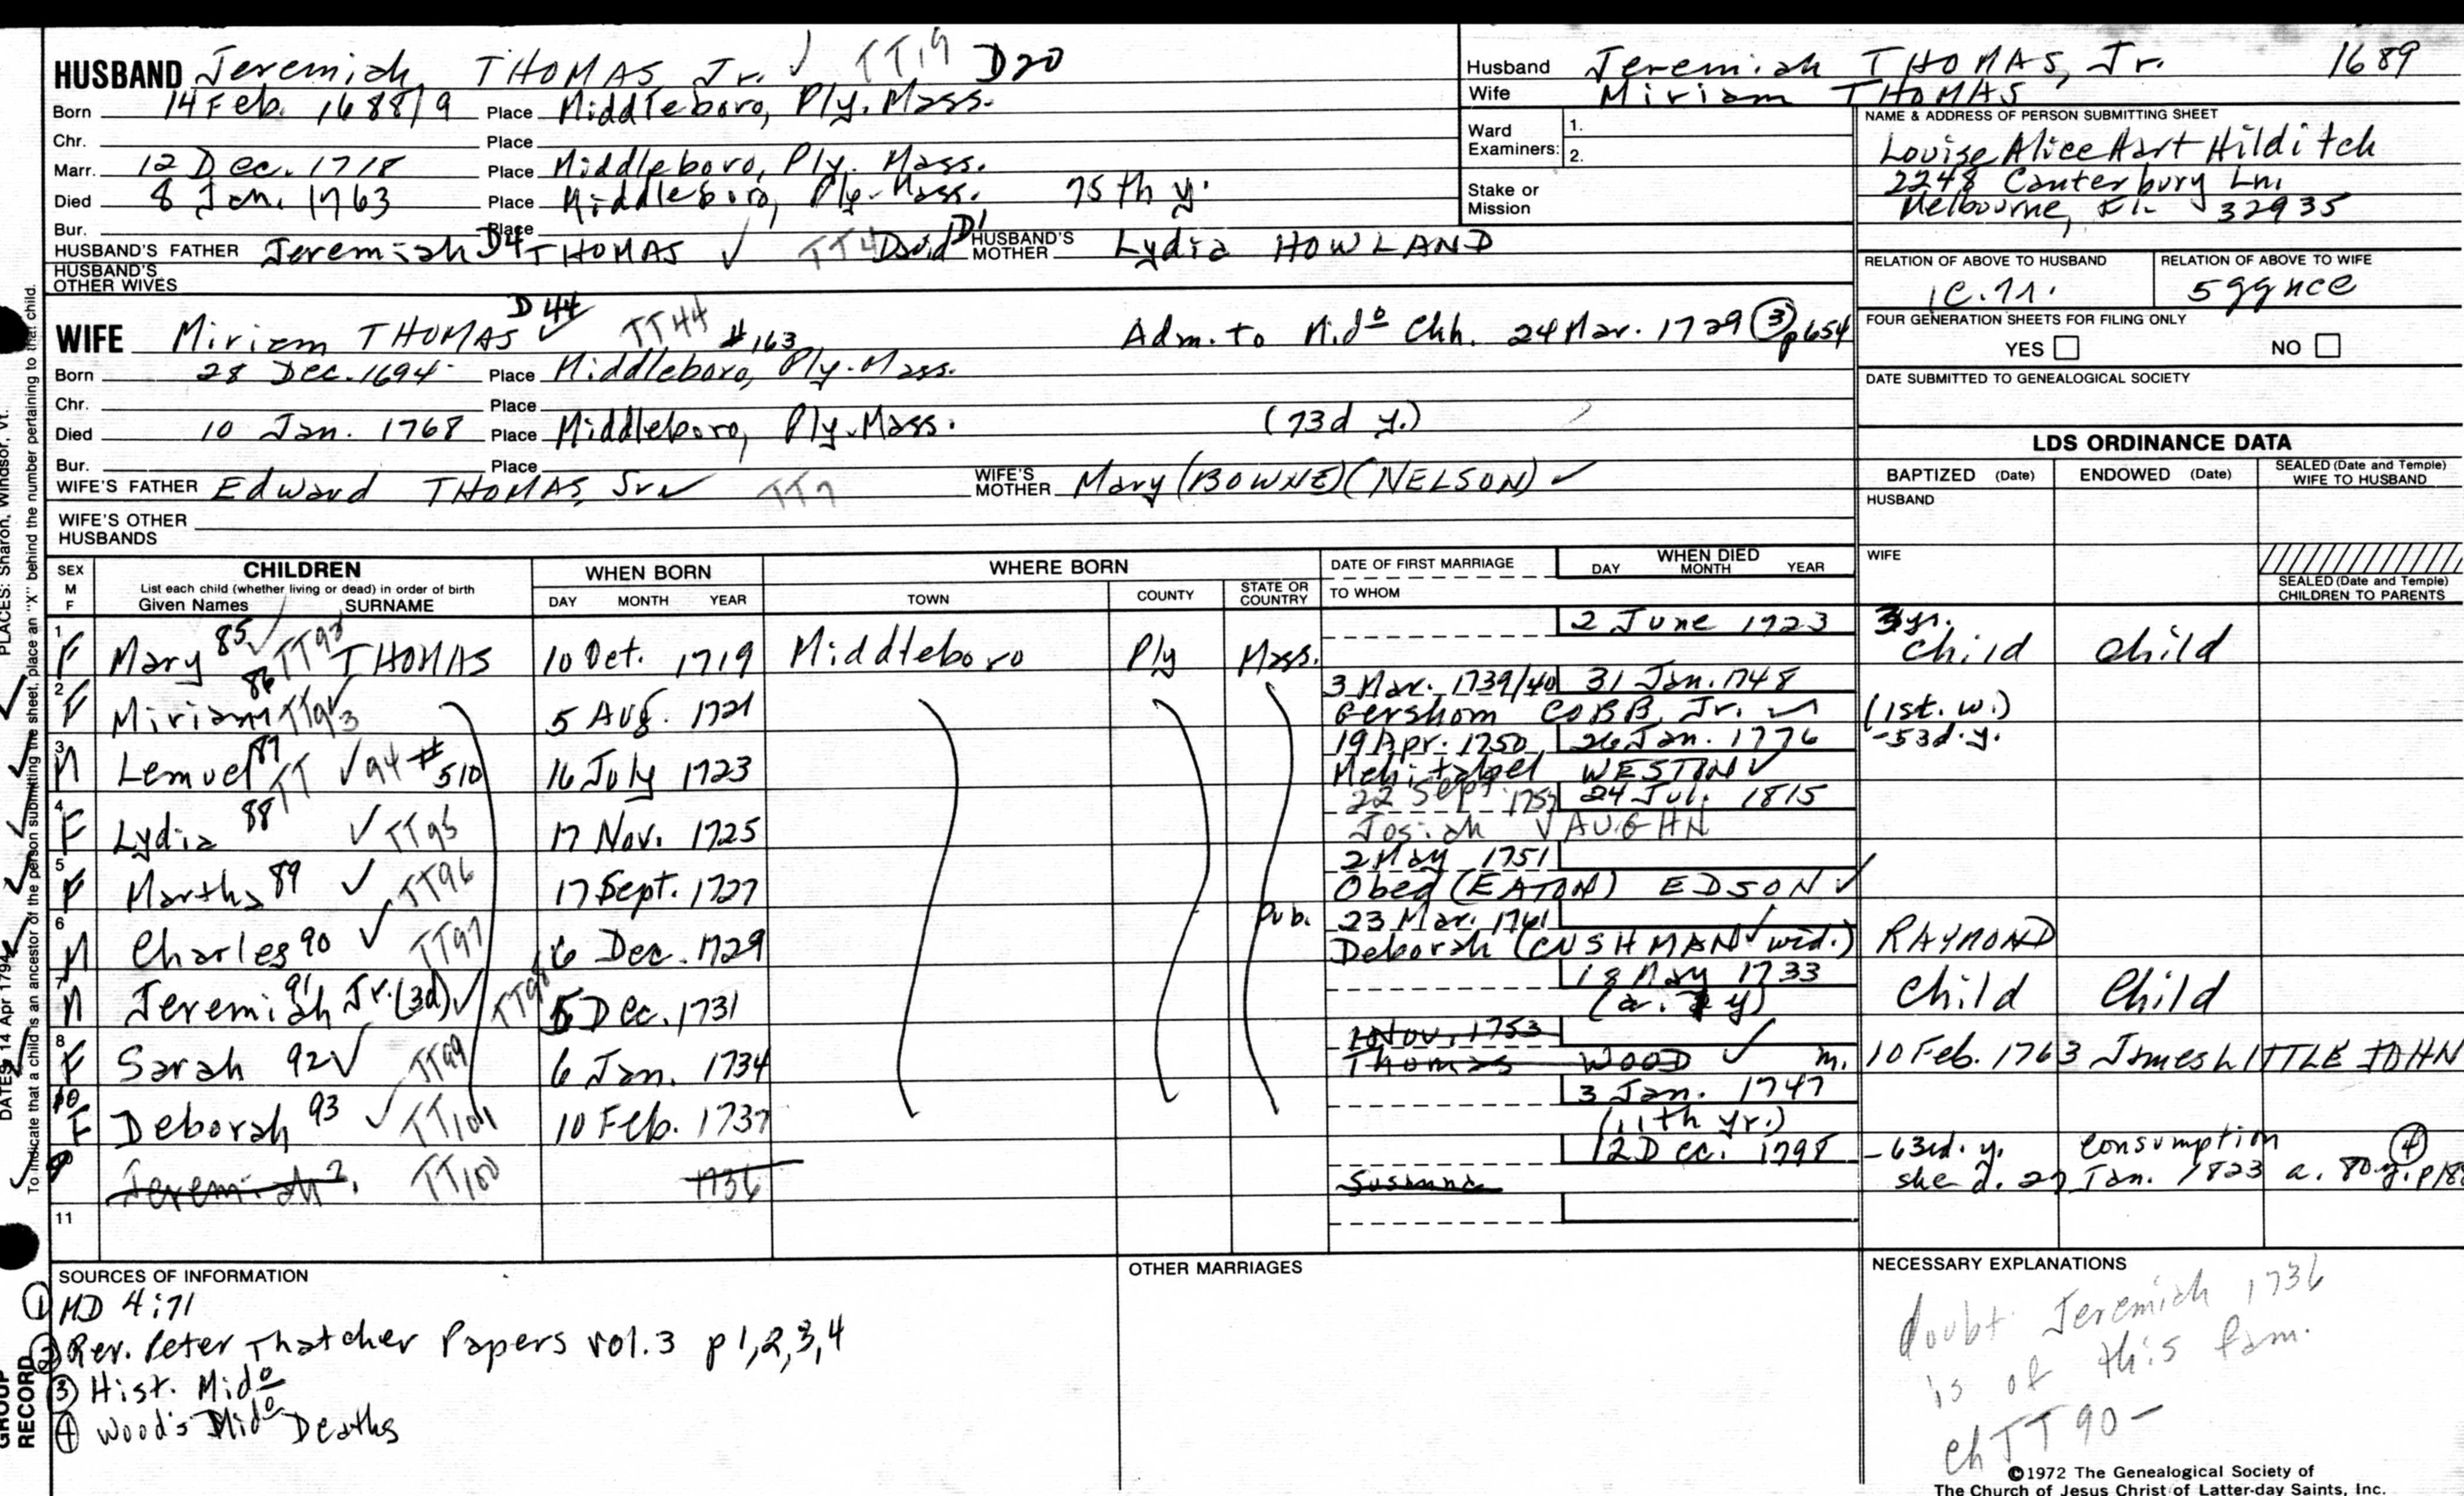 HUSBAND Jeremiah THOMAS Jr. ✓ TT19 D20
Born 14 Feb. 1688/9 Place Middleboro, Ply. Mass.
Chr. Place
Marr. 12 Dec. 1718 Place Middleboro, Ply. Mass.
Died 8 Jan. 1763 Place Middleboro, Ply. Mass. 75th y.
Bur. Place
HUSBAND'S FATHER Jeremiah D4 THOMAS ✓ TT4 David D1 HUSBAND'S MOTHER Lydia HOWLAND
HUSBAND'S OTHER WIVES
WIFE Miriam THOMAS D44 ✓ TT44 #163 Adm. to Mido Chh. 24 Mar. 1729 ③ p654
Born 28 Dec. 1694 Place Middleboro, Ply. Mass.
Chr. Place
Died 10 Jan. 1768 Place Middleboro, Ply. Mass. (73d y.)
Bur. Place
WIFE'S FATHER Edward THOMAS, Sr ✓ TT7 WIFE'S MOTHER Mary (BOWNE) (NELSON) ✓
WIFE'S OTHER HUSBANDS
Husband Jeremiah THOMAS, Jr. 1689
Wife Miriam THOMAS
Ward Examiners: 1.
2.
Stake or Mission
NAME & ADDRESS OF PERSON SUBMITTING SHEET
Louise Alice Hart Hilditch
2248 Canterbury Ln.
Melbourne, FL. 32935
RELATION OF ABOVE TO HUSBAND RELATION OF ABOVE TO WIFE
5ggnce
FOUR GENERATION SHEETS FOR FILING ONLY
YES NO
DATE SUBMITTED TO GENEALOGICAL SOCIETY
LDS ORDINANCE DATA
BAPTIZED (Date) ENDOWED (Date) SEALED (Date and Temple) WIFE TO HUSBAND
HUSBAND
WIFE
SEALED (Date and Temple) CHILDREN TO PARENTS
SEX M F CHILDREN WHEN BORN WHERE BORN DATE OF FIRST MARRIAGE WHEN DIED
List each child (whether living or dead) in order of birth
Given Names SURNAME DAY MONTH YEAR TOWN COUNTY STATE OR COUNTRY TO WHOM DAY MONTH YEAR
2 June 1723 3 yr.
1 F Mary 85 ✓ TT92 THOMAS 10 Oct. 1719 Middleboro Ply Mass. child child
3 Mar. 1739/40 31 Jan. 1748
2 F Miriam 86 TT93 5 Aug. 1721 Gershom COBB, Jr. (1st. w.)
19 Apr. 1750 26 Jan. 1776 -53d. y.
3 M Lemuel 87 TT ✓ 94 #510 16 July 1723 Mehitabel WESTON ✓
22 Sept. 24 Jul. 1815
4 F Lydia 88 ✓ TT95 17 Nov. 1725 Josiah VAUGHN
2 May 1751
5 F Martha 89 ✓ TT96 17 Sept. 1727 Obed (EATON) EDSON ✓
Pub. 23 Mar. 1761
6 M Charles 90 ✓ TT97 6 Dec. 1729 Deborah (CUSHMAN ✓ wid.) RAYMOND
18 May 1733
7 M Jeremiah 91 Jr. (3d) ✓ TT98 5 Dec. 1731 Child Child
1 Nov. 1753
8 F Sarah 92 ✓ TT99 6 Jan. 1734 Thomas WOOD ✓ m. 10 Feb. 1763 James LITTLE JOHN
3 Jan. 1747
10 F Deborah 93 ✓ TT101 10 Feb. 1737 (11th yr.)
12 Dec. 1798 -63rd. y. consumption ④
9 Jeremiah 2. TT100 1736 Susanna she d. 27 Jan. 1823 a. 80 y.
11
SOURCES OF INFORMATION
① MD 4:71
② Rev. Peter Thatcher Papers vol. 3 p 1,2,3,4
③ Hist. Mido
④ Wood's Mido Deaths
OTHER MARRIAGES
NECESSARY EXPLANATIONS
doubt Jeremiah 1736
is of this fam.
ch TT 90-
©1972 The Genealogical Society of
The Church of Jesus Christ of Latter-day Saints, Inc.
PLACES: Sharon, Windsor, Vt.
DATES: 14 Apr 1794
To indicate that a child is an ancestor of the person submitting the sheet, place an "X" behind the number pertaining to that child.
GROUP RECORD